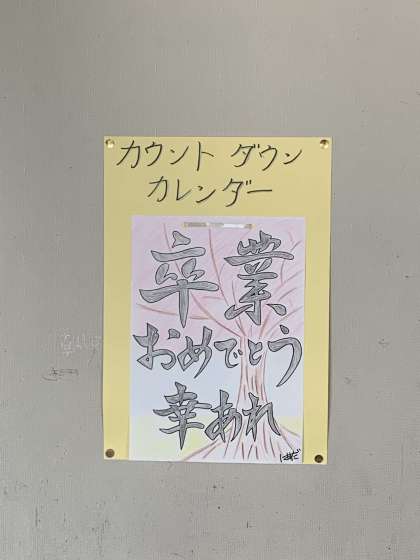 カウント ダウン
カレンダー
卒業
おめでとう
幸あれ